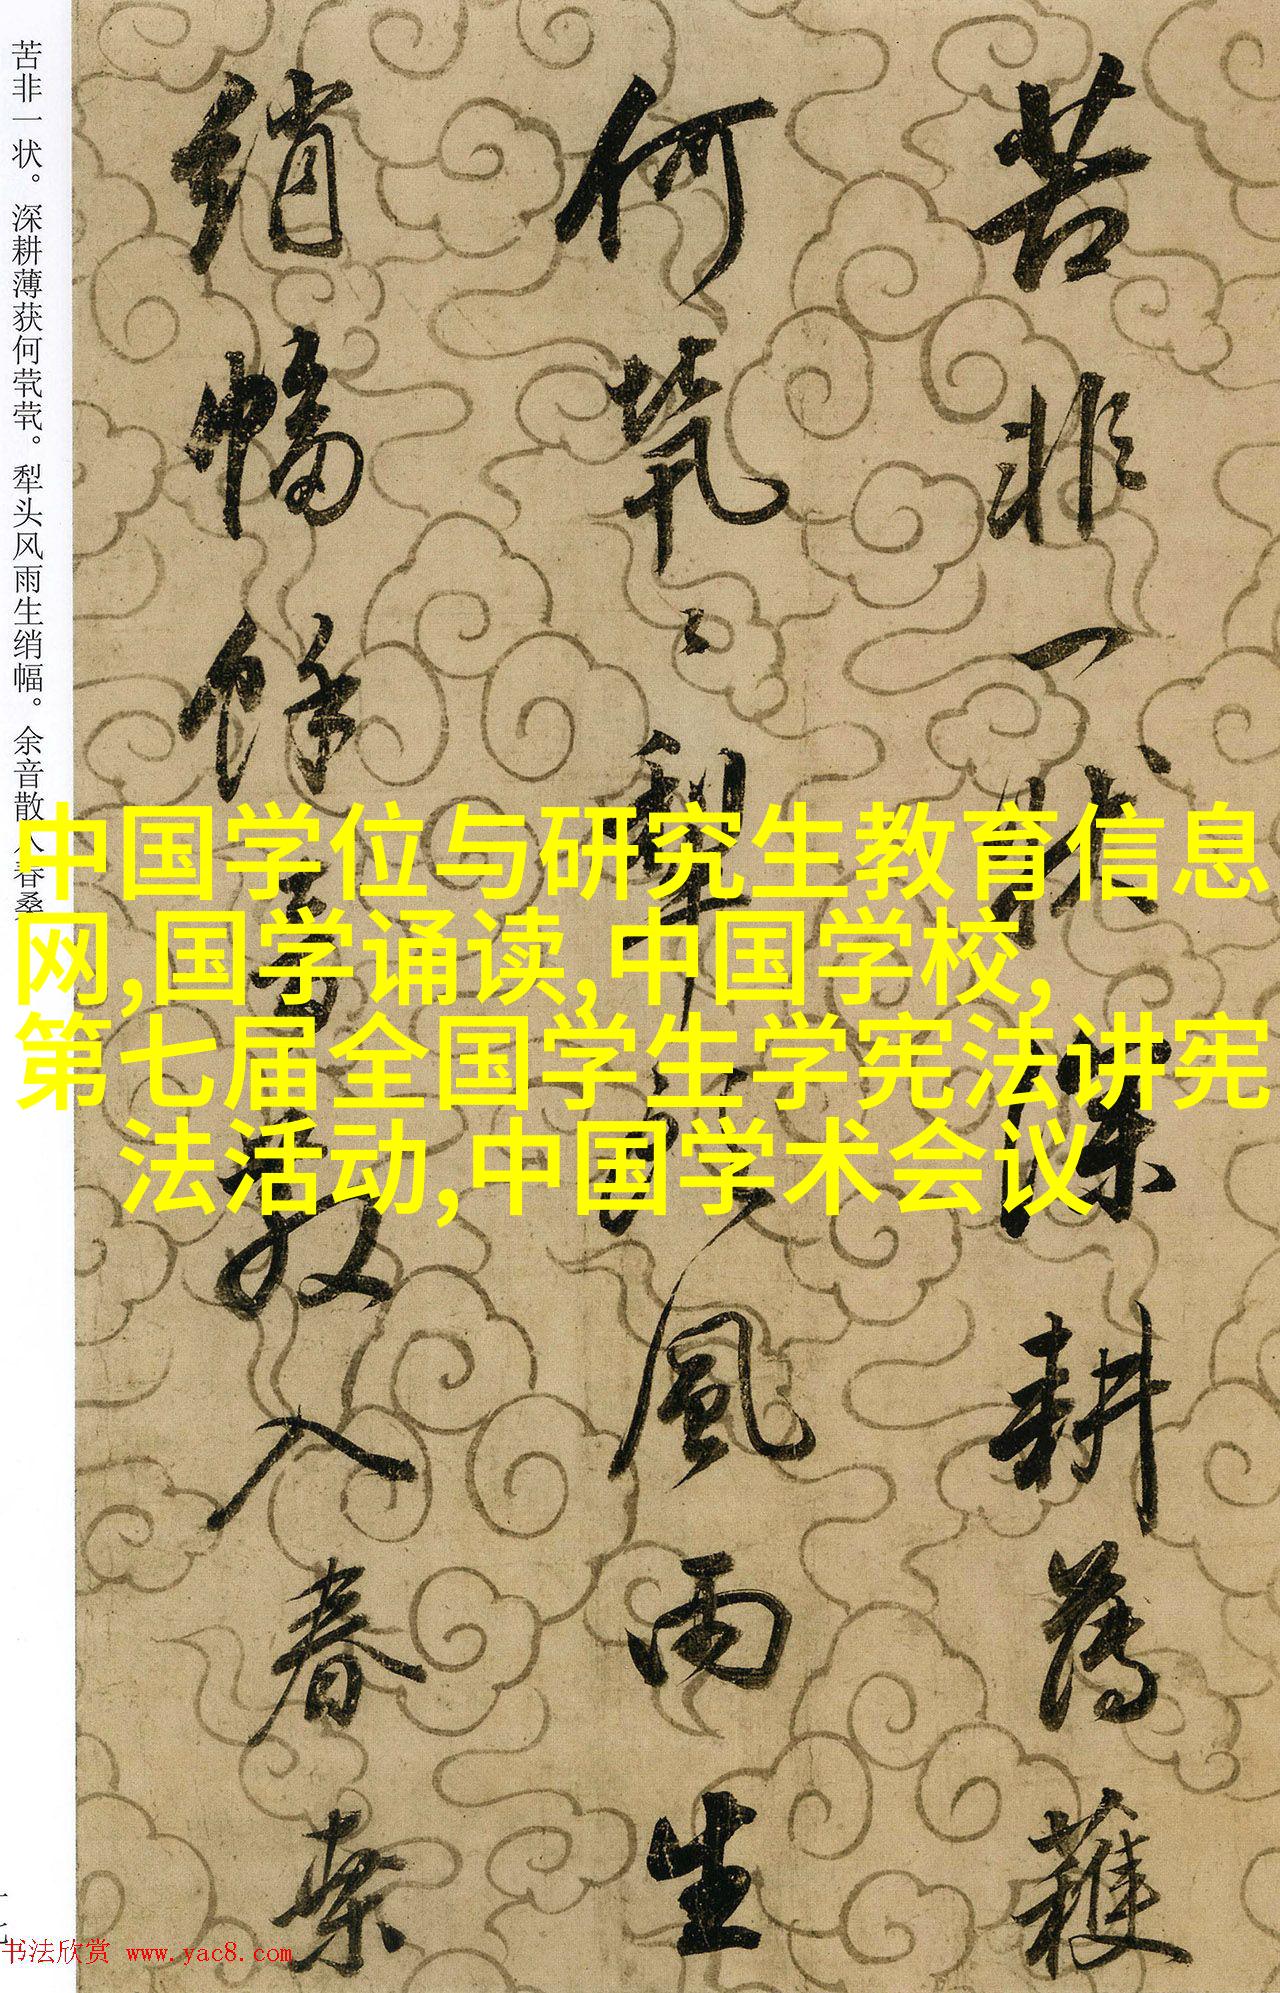 苦非一状。深耕薄获何茕茕。犁头风雨生绡幅。余音散入春桑
苦非一状深耕薄穫
何茕〻犁头風雨生
绡幅馀音散入春桑
中国学位与研究生教育信息
网,国学诵读,中国学校,
第七届全国学生学宪法讲宪
法活动,中国学术会议
书法欣赏 www.yac8.com